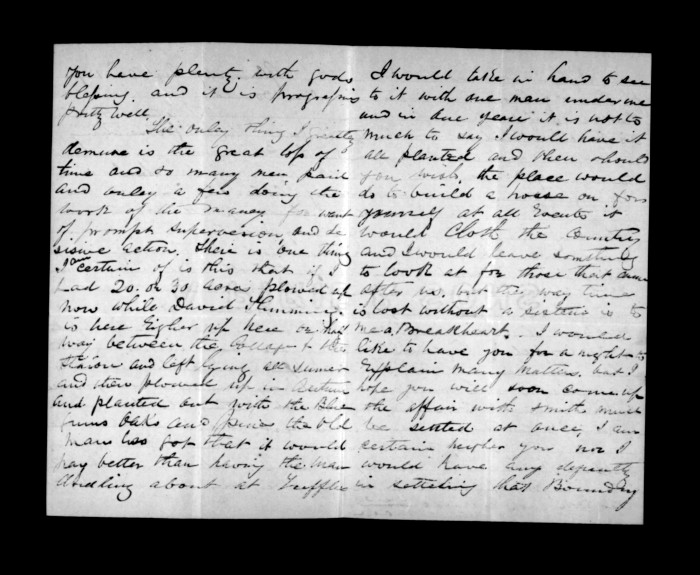 you have plenty. with gods
blessing. and it is progressing
pritty well
The onley thing I greatly
demure is the great loss of
time and so many men paid
and onley a few doing the
work of the maney for want
of prompt supervesion and de
sisive action. Their is one thing
I am certain of is this that if I
had 20. or 30 acres plowed up
now while David Flimming
is here Eigher up here or half
way between the Cottage & the
Station and left lying all sumer
and then plowed up in Autum
and planted out with the Blue
gums Oaks and pines the Old
man has got that it would
pay better than having the man
dodling about at
I would take in hand to see
to it with one man under me
and in due year it is not to
much to say I would have it
all planted and then should
you wish, the place would
do to build a house on for
yourself at all Events it
would Cloth the Country
and I would leave something
to look at for those that come
after us. but the way time
is lost without a sistem is to
me a Breakheart. I would
like to have you for a night to
Explain many matters. but I
hope you will soon come up
the affair with Smith must
be settled at once, I am
certain neigher you nor I
would have any dificulty
in setteling that Boundry